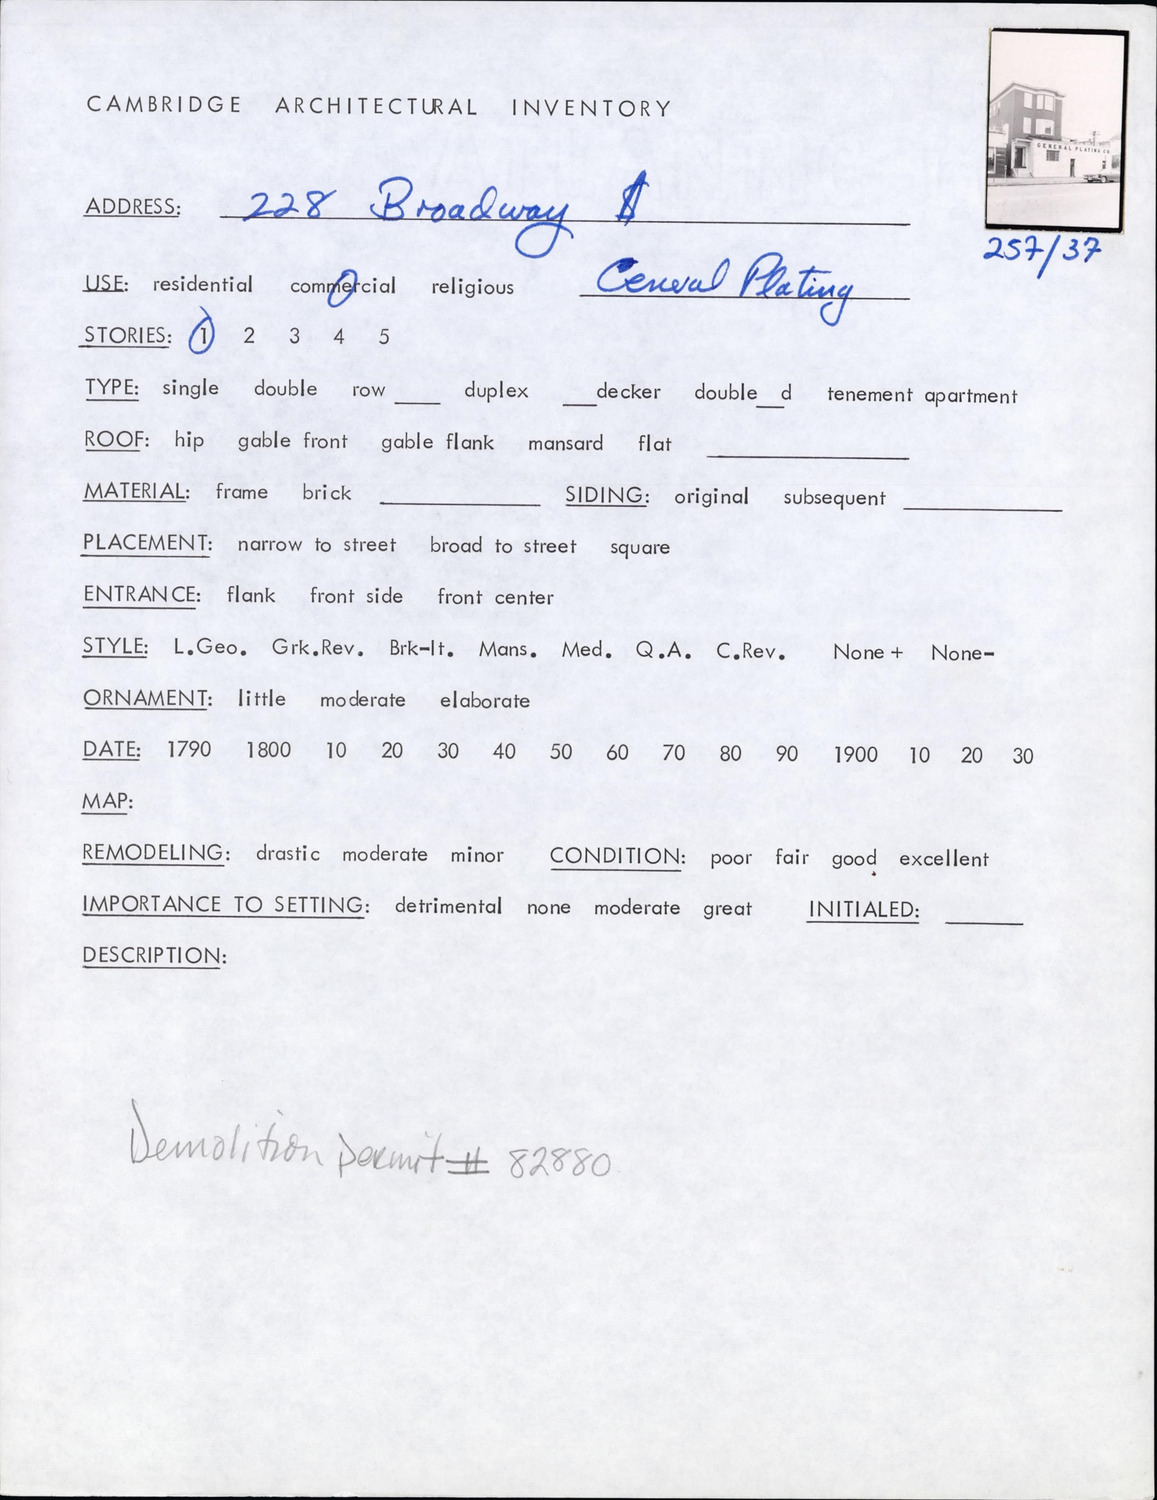 GENERAL PLATING CO
CAMBRIDGE ARCHITECTURAL INVENTORY
ADDRESS: 228 Broadway $
257/37
USE: residential commercial religious General Plating
STORIES: 1 2 3 4 5
TYPE: single double row ____ duplex ___decker double__d tenement apartment
ROOF: hip gable front gable flank mansard flat
MATERIAL: frame brick SIDING: original subsequent
PLACEMENT: narrow to street broad to street square
ENTRANCE: flank front side front center
STYLE: L.Geo. Grk.Rev. Brk-It. Mans. Med. Q.A. C.Rev. None + None-
ORNAMENT: little moderate elaborate
DATE: 1790 1800 10 20 30 40 50 60 70 80 90 1900 10 20 30
MAP:
REMODELING: drastic moderate minor CONDITION: poor fair good excellent
IMPORTANCE TO SETTING: detrimental none moderate great INITIALED:
DESCRIPTION:
Demolition permit # 82880